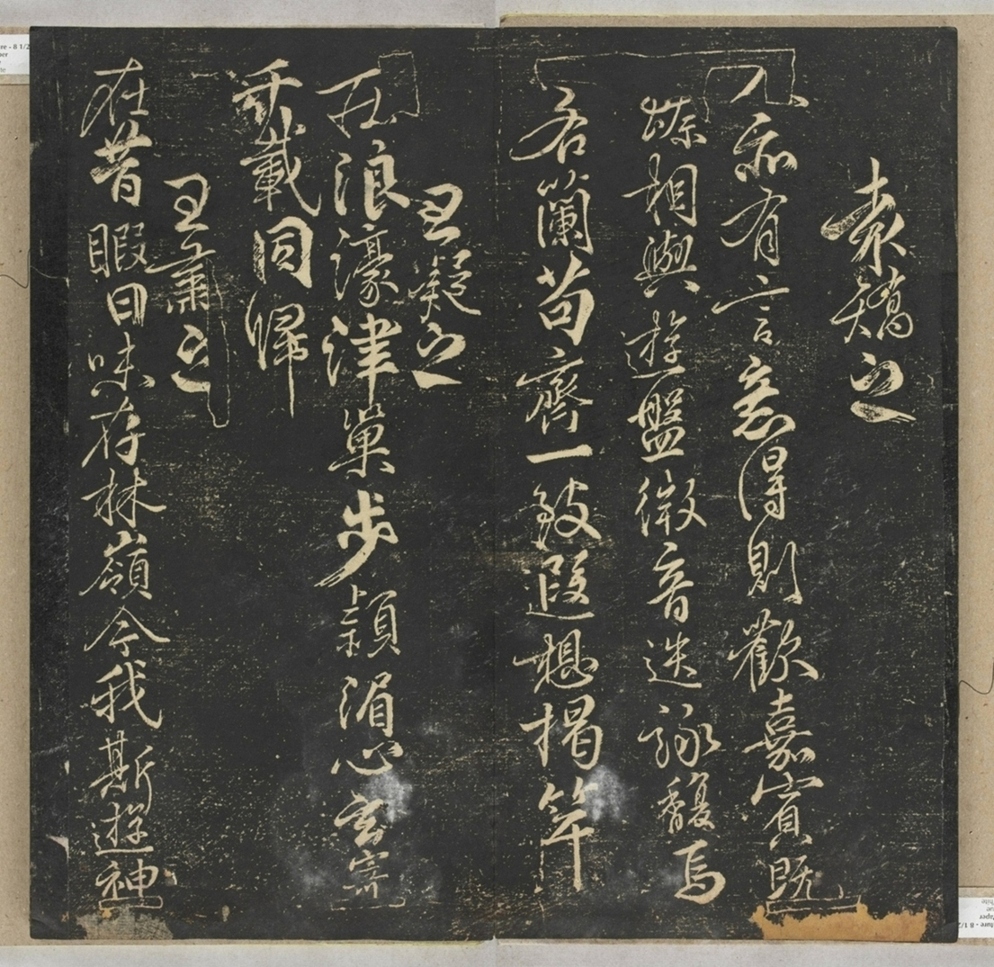 袁矯之
人亦有言意得則歡嘉賓既
臻相與遊盤微音迭詠馥焉
若蘭苟齊一致遐想揭竿
王凝之
庄浪濠津巢步潁湄心玄寄
千載同歸
王肅之
在昔暇日味存林嶺今我斯遊神